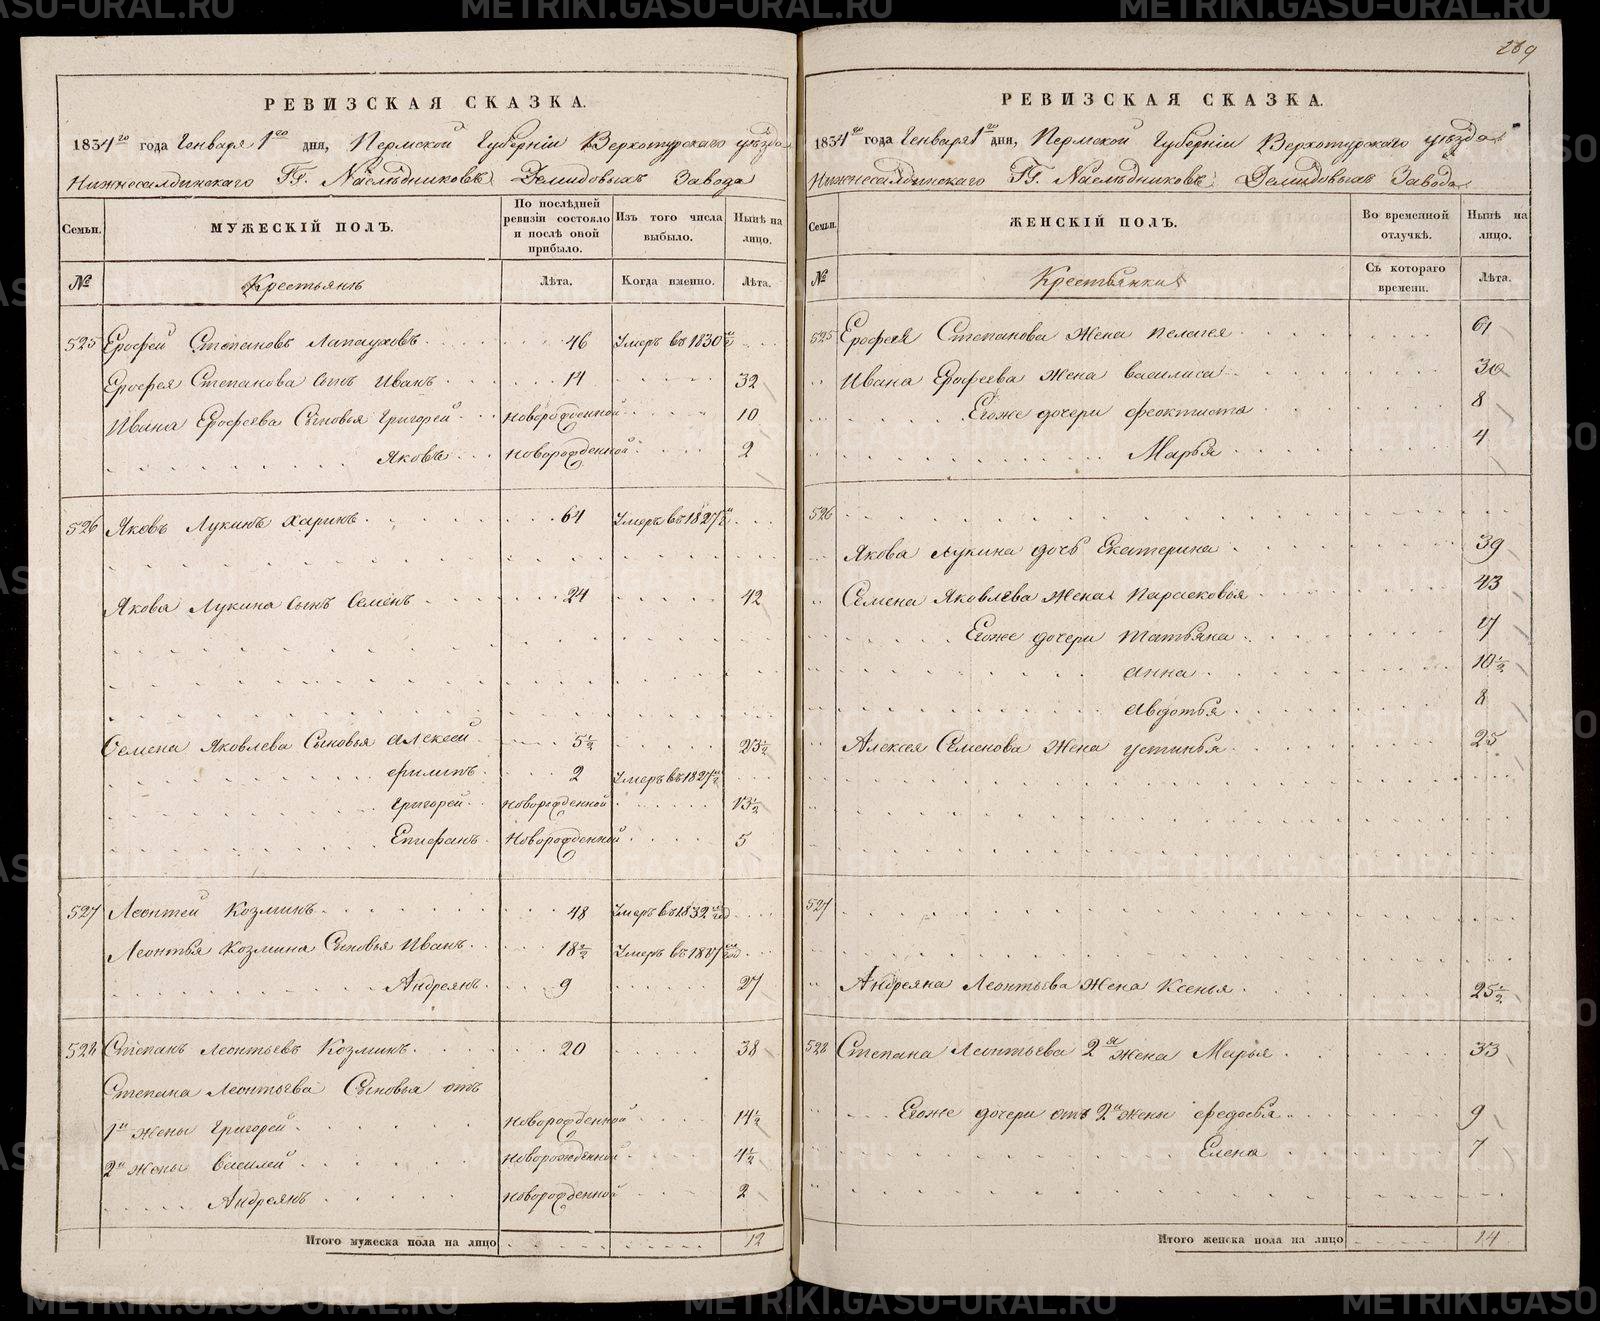 РЕВИЗСКАЯ СКАЗКА.
1834го года Генваря 1го дня, Пермской Губернiи Верхотурскаго уѣзда
Нижнесалдинскаго ГГ. Наслѣдниковъ Демидовыхъ Завода
Семьи. МУЖЕСКIЙ ПОЛЪ. По послѣдней ревизiи состояло и послѣ оной прибыло. Изъ того числа выбыло. Нынѣ на лицо.
№ Крестьянъ Лѣта. Когда именно. Лѣта.
525 Ерофей Степановъ Лапауховъ 46 Умеръ въ 1830м
Ерофея Степанова сынъ Иванъ 14 32
Ивана Ерофеева Сыновья Григорей новорожденной 10
Яковъ новорожденной 2
526 Яковъ Лукинъ Харинъ 64 Умеръ въ 1827м
Якова Лукина сынъ Семенъ 24 42
Семена Яковлева Сыновья Алексей 5½ 23½
Филипъ 2 Умеръ въ 1827м
Григорей новорожденной 13½
Епифанъ Новорожденной 5
527 Леонтей Козминъ 48 Умеръ въ 1832м
Леонтья Козмина Сыновья Иванъ 18½ Умеръ въ
Андреянъ 9 27
528 Степанъ Леонтьевъ Козминъ 20 38
Степана Леонтьева Сыновья отъ
1й жены Григорей новорожденной 14½
2й жены Василей новорожденной 4½
Андреянъ новорожденной 2
Итого мужеска пола на лицо 12
289
РЕВИЗСКАЯ СКАЗКА.
1834го года Генваря 1го дня, Пермской Губернiи Верхотурскаго уѣзда
Нижнесалдинскаго ГГ. Наслѣдниковъ Демидовыхъ Завода
Семьи. ЖЕНСКIЙ ПОЛЪ. Во временной отлучкѣ. Нынѣ на лицо.
№ Крестьянки Съ котораго времени. Лѣта.
525 Ерофея Степанова жена Пелагея 61
Ивана Ерофеева жена Василиса 30
Егоже дочери Феоктиста 8
Марья 4
526
Якова Лукина дочь Екатерина 39
Семена Яковлева жена Парасковья 43
Егоже дочери Татьяна 17
Анна 10½
Авдотья 8
Алексея Семенова жена Устинья 25
527
Андреяна Леонтьева жена Ксенья 25½
528 Степана Леонтьева 2я жена Марья 33
Егоже дочери отъ 2й жены Федосья 9
Елена 7
Итого женска пола на лицо 14